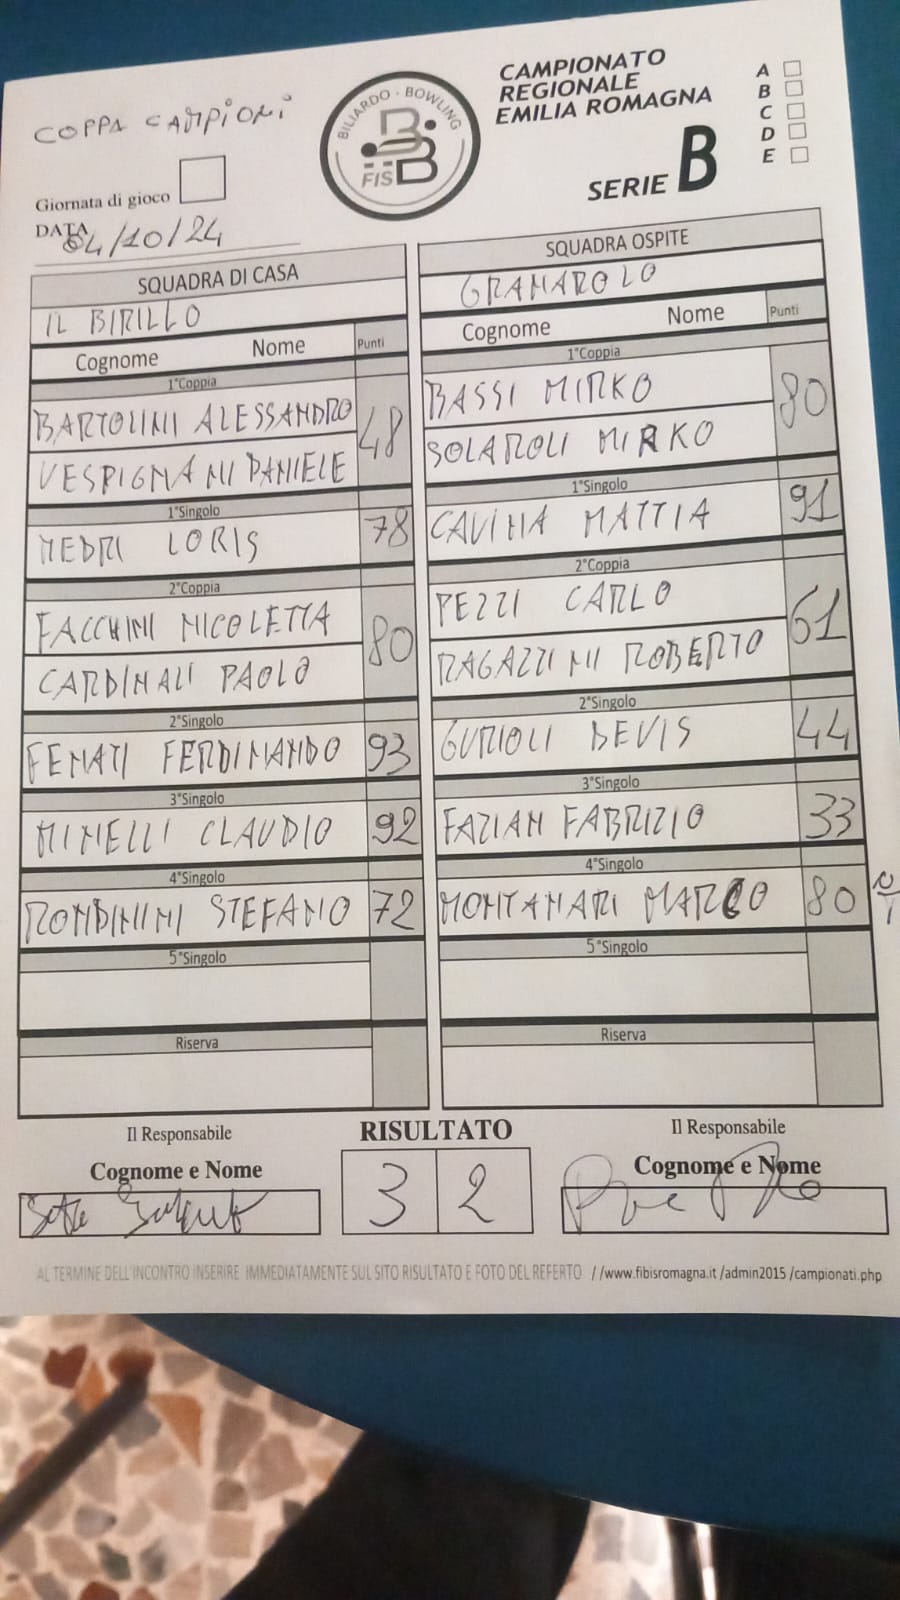 COPPA CAMPIONI
BILIARDO · BOWLING
FISBB
CAMPIONATO
REGIONALE
EMILIA ROMAGNA
SERIE B
A
B
C
D
E
Giornata di gioco
DATA 04/10/24
SQUADRA DI CASA
IL BIRILLO
Cognome Nome Punti
1°Coppia
BARTOLINI ALESSANDRO 48
VESPIGNANI DANIELE
1°Singolo
NEDRI LORIS 78
2°Coppia
FACCHINI NICOLETTA 80
CARDINALI PAOLO
2°Singolo
FENATI FERDINANDO 93
3°Singolo
MINELLI CLAUDIO 92
4°Singolo
RONDININI STEFANO 72
5°Singolo
Riserva
SQUADRA OSPITE
GRANAROLO
Cognome Nome Punti
1°Coppia
BASSI MIRKO 80
SOLAROLI MIRKO
1°Singolo
CAVINA MATTIA 91
2°Coppia
PEZZI CARLO 61
RAGAZZINI ROBERTO
2°Singolo
GURIOLI DEVIS 44
3°Singolo
FAZIAN FABRIZIO 33
4°Singolo
MONTANARI MARCO 80
5°Singolo
Riserva
Il Responsabile
Cognome e Nome
RISULTATO
3 2
Il Responsabile
Cognome e Nome
AL TERMINE DELL'INCONTRO INSERIRE IMMEDIATAMENTE SUL SITO RISULTATO E FOTO DEL REFERTO //www.fibisromagna.it /admin2015 /campionati.php